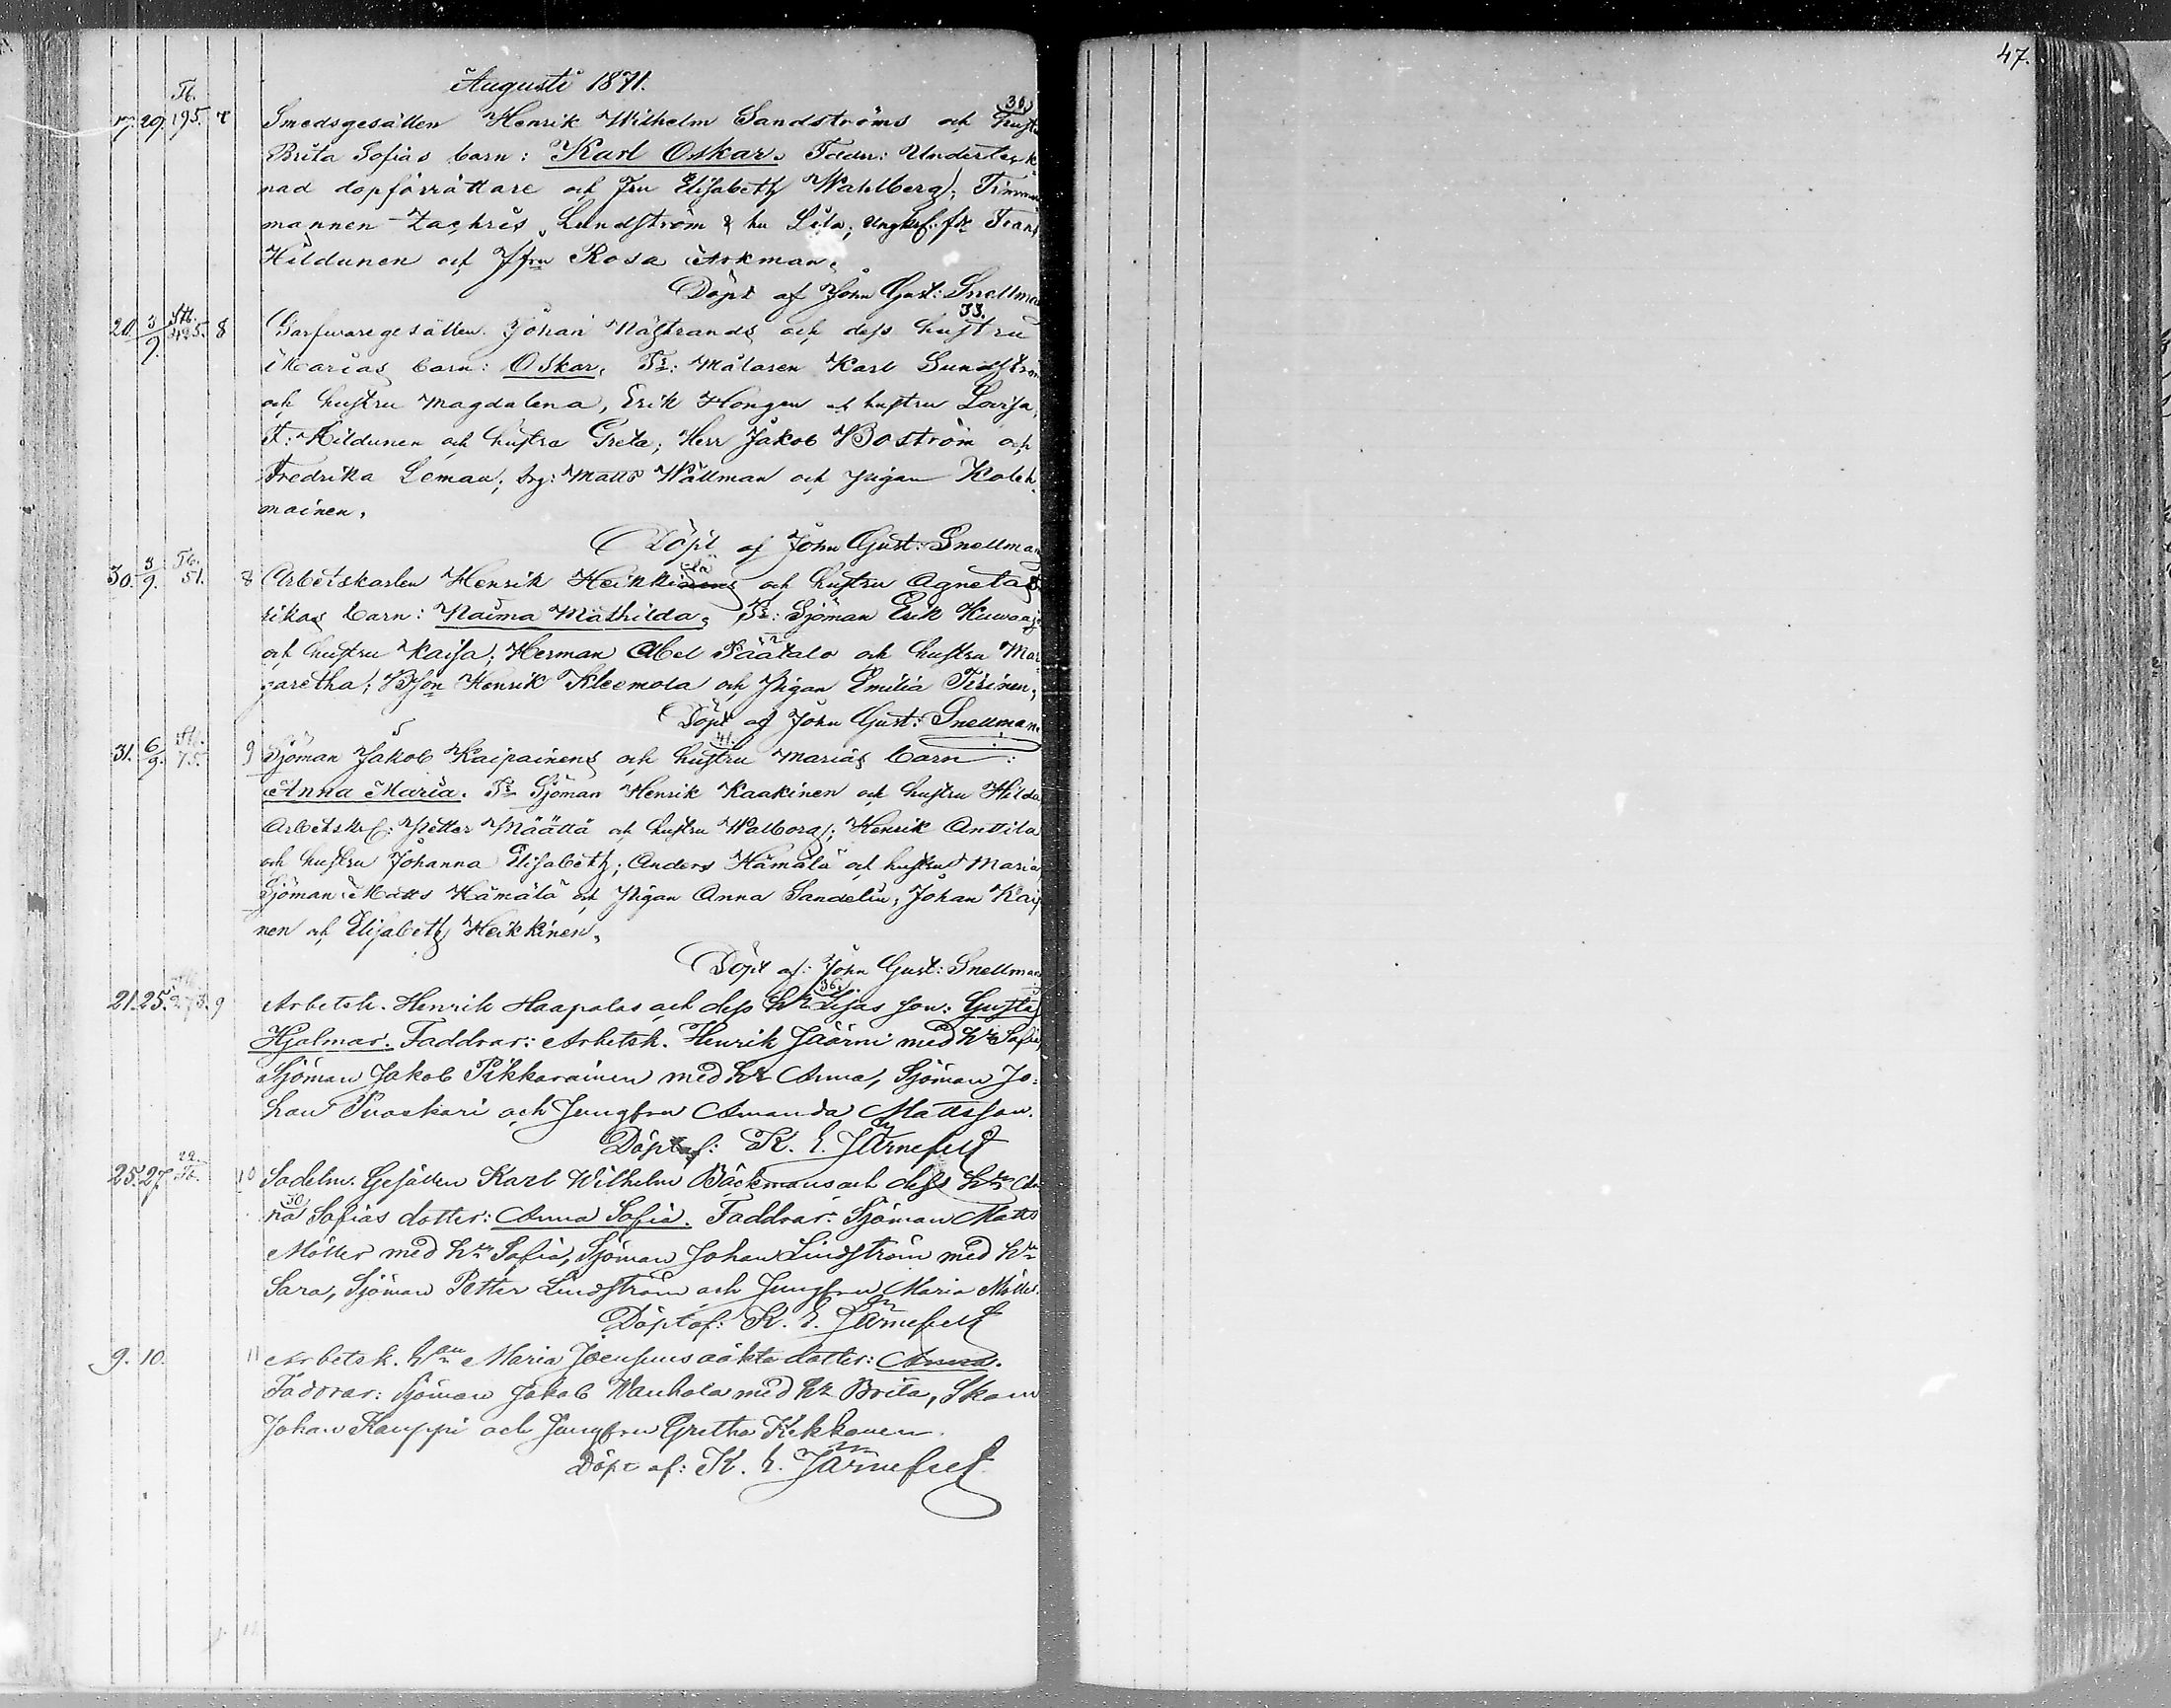 47.
Augusti 1871.
Tb. 36
17. 29. 195. 7 Smedsgesällen Henrik Wilhelm Sandströms och hustr
Brita Sofias barn: Karl Oskar. Faddr: Underteck
nad dopförrättare och Fru Elisabeth Wahlberg; Timmer
mannen Zachris Lundström & hu Lisa; Frans
Hildunen och Jfru Rosa Arkman.
Döpt af John Gust: Snellman
33.
20. 3/9. 425. 8 Garfwaregesällen Johan Nästrands och dess hustru
Marias barn: Oskar. Fr: Målaren Karl Sundström
och hustru Magdalena, Erik Hongen och hustru Lovisa,
F: Hildunen och hustru Greta; Herr Jakob Boström och
Fredrika Leman; drg: Matts Wällman och Pigan Koleh
mainen.
Döpt af John Gust: Snellman
30. 3/9. Tb. 51. 8 Arbetskarlen Henrik Heikkinens och hustru Agneta
rikas barn: Naima Mathilda. Fr: Sjöman Erik
och hustru Kaisa; Herman Abel Säätalo och hustru Mar
garetha; Bson Henrik Kleemola och Pigan Emilia Tirinen,
Döpt af John Gust: Snellman.
41.
31. 6/9. 75. 9 Sjöman Jakob Kaipainens och hustru Marias barn:
Anna Maria. Fr Sjöman Henrik Kaakinen och hustru Hilda,
Arbetsk: Petter Määttä och hustru Walborg; Henrik Anttila
och hustru Johanna Elisabeth; Anders Hämälä och hustru Maria,
Sjöman Matts Hämälä och Pigan Anna Sandelin, Johan Kai
nen och Elisabeth Heikkinen.
Döpt af: John Gust: Snellman
36.
21. 25. 9 Arbetsk. Henrik Haapalas och dess hr Lisas son: Gustaf
Hjalmar. Faddrar: Arbetsk. Henrik Jäärni med hr Sofia,
Sjöman Jakob Pikkarainen med hr Anna, Sjöman Jo:
han Puoskari och Jungfru Amanda Mattsson.
Döpt af: K. E. Järnefelt
25. 27. 22. Tb. 10 Sadelm. Gesällen Karl Wilhelm Bäckmans och dess hru An
30
na Sofias dotter: Anna Sofia. Faddrar: Sjöman Matts
Möller med hru Sofia, Sjöman Johan Lindström med hru
Sara, Sjöman Petter Lindström och Jungfru Maria Möller.
Döpt af: K. E. Järnefelt
9. 10. 11 Arbetsk. Maria Joensuus oäkta dotter: Anna.
Fadrar: Sjöman Jakob Wanhala med hr Brita, Skom
Johan Kauppi och Jungfru Gretha Kekkonen.
Döpt af: K. E. Järnefelt